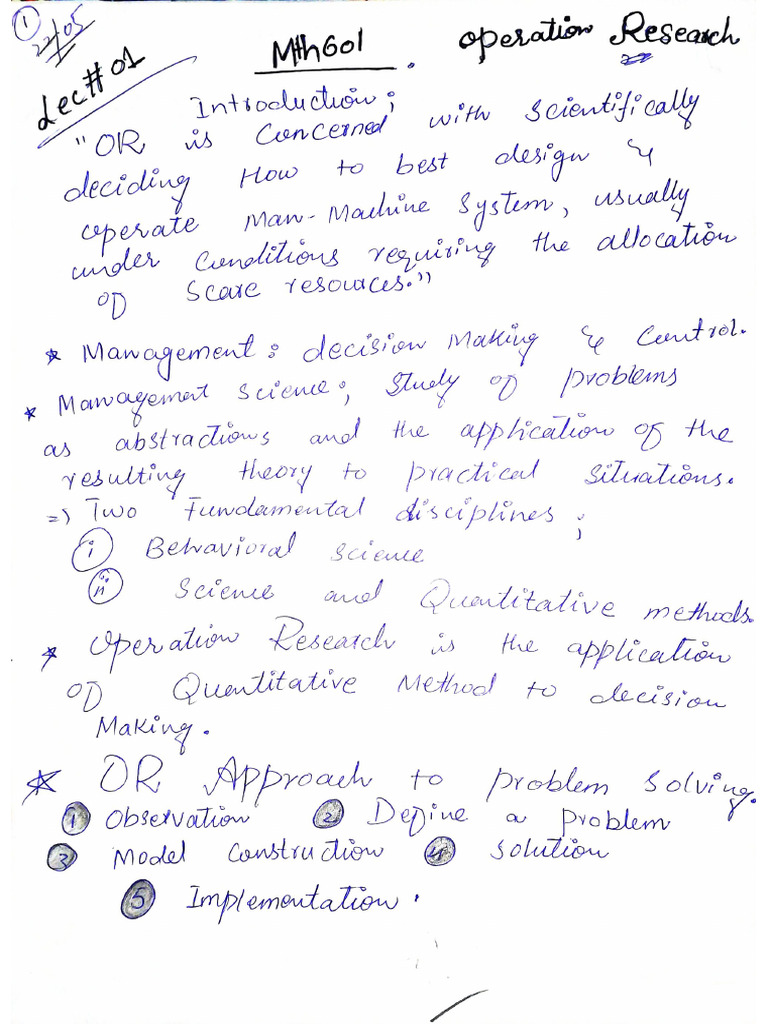 1
22/05
Lec# 01
Mth601. Operation Research
Introduction;
"OR is Concerned with scientifically
deciding How to best design &
operate Man-Machine System, usually
under Conditions requiring the allocation
of Scare resources."
* Management: decision Making & Control.
* Management science; study of problems
as abstractions and the application of the
resulting theory to practical situations.
=) Two Fundamental disciplines;
i Behavioral science
ii Science and Quantitative methods.
* Operation Research is the application
of Quantitative Method to decision
Making.
* OR Approach to problem solving.
1 Observation 2 Define a problem
3 Model Construction 4 Solution
5 Implementation.